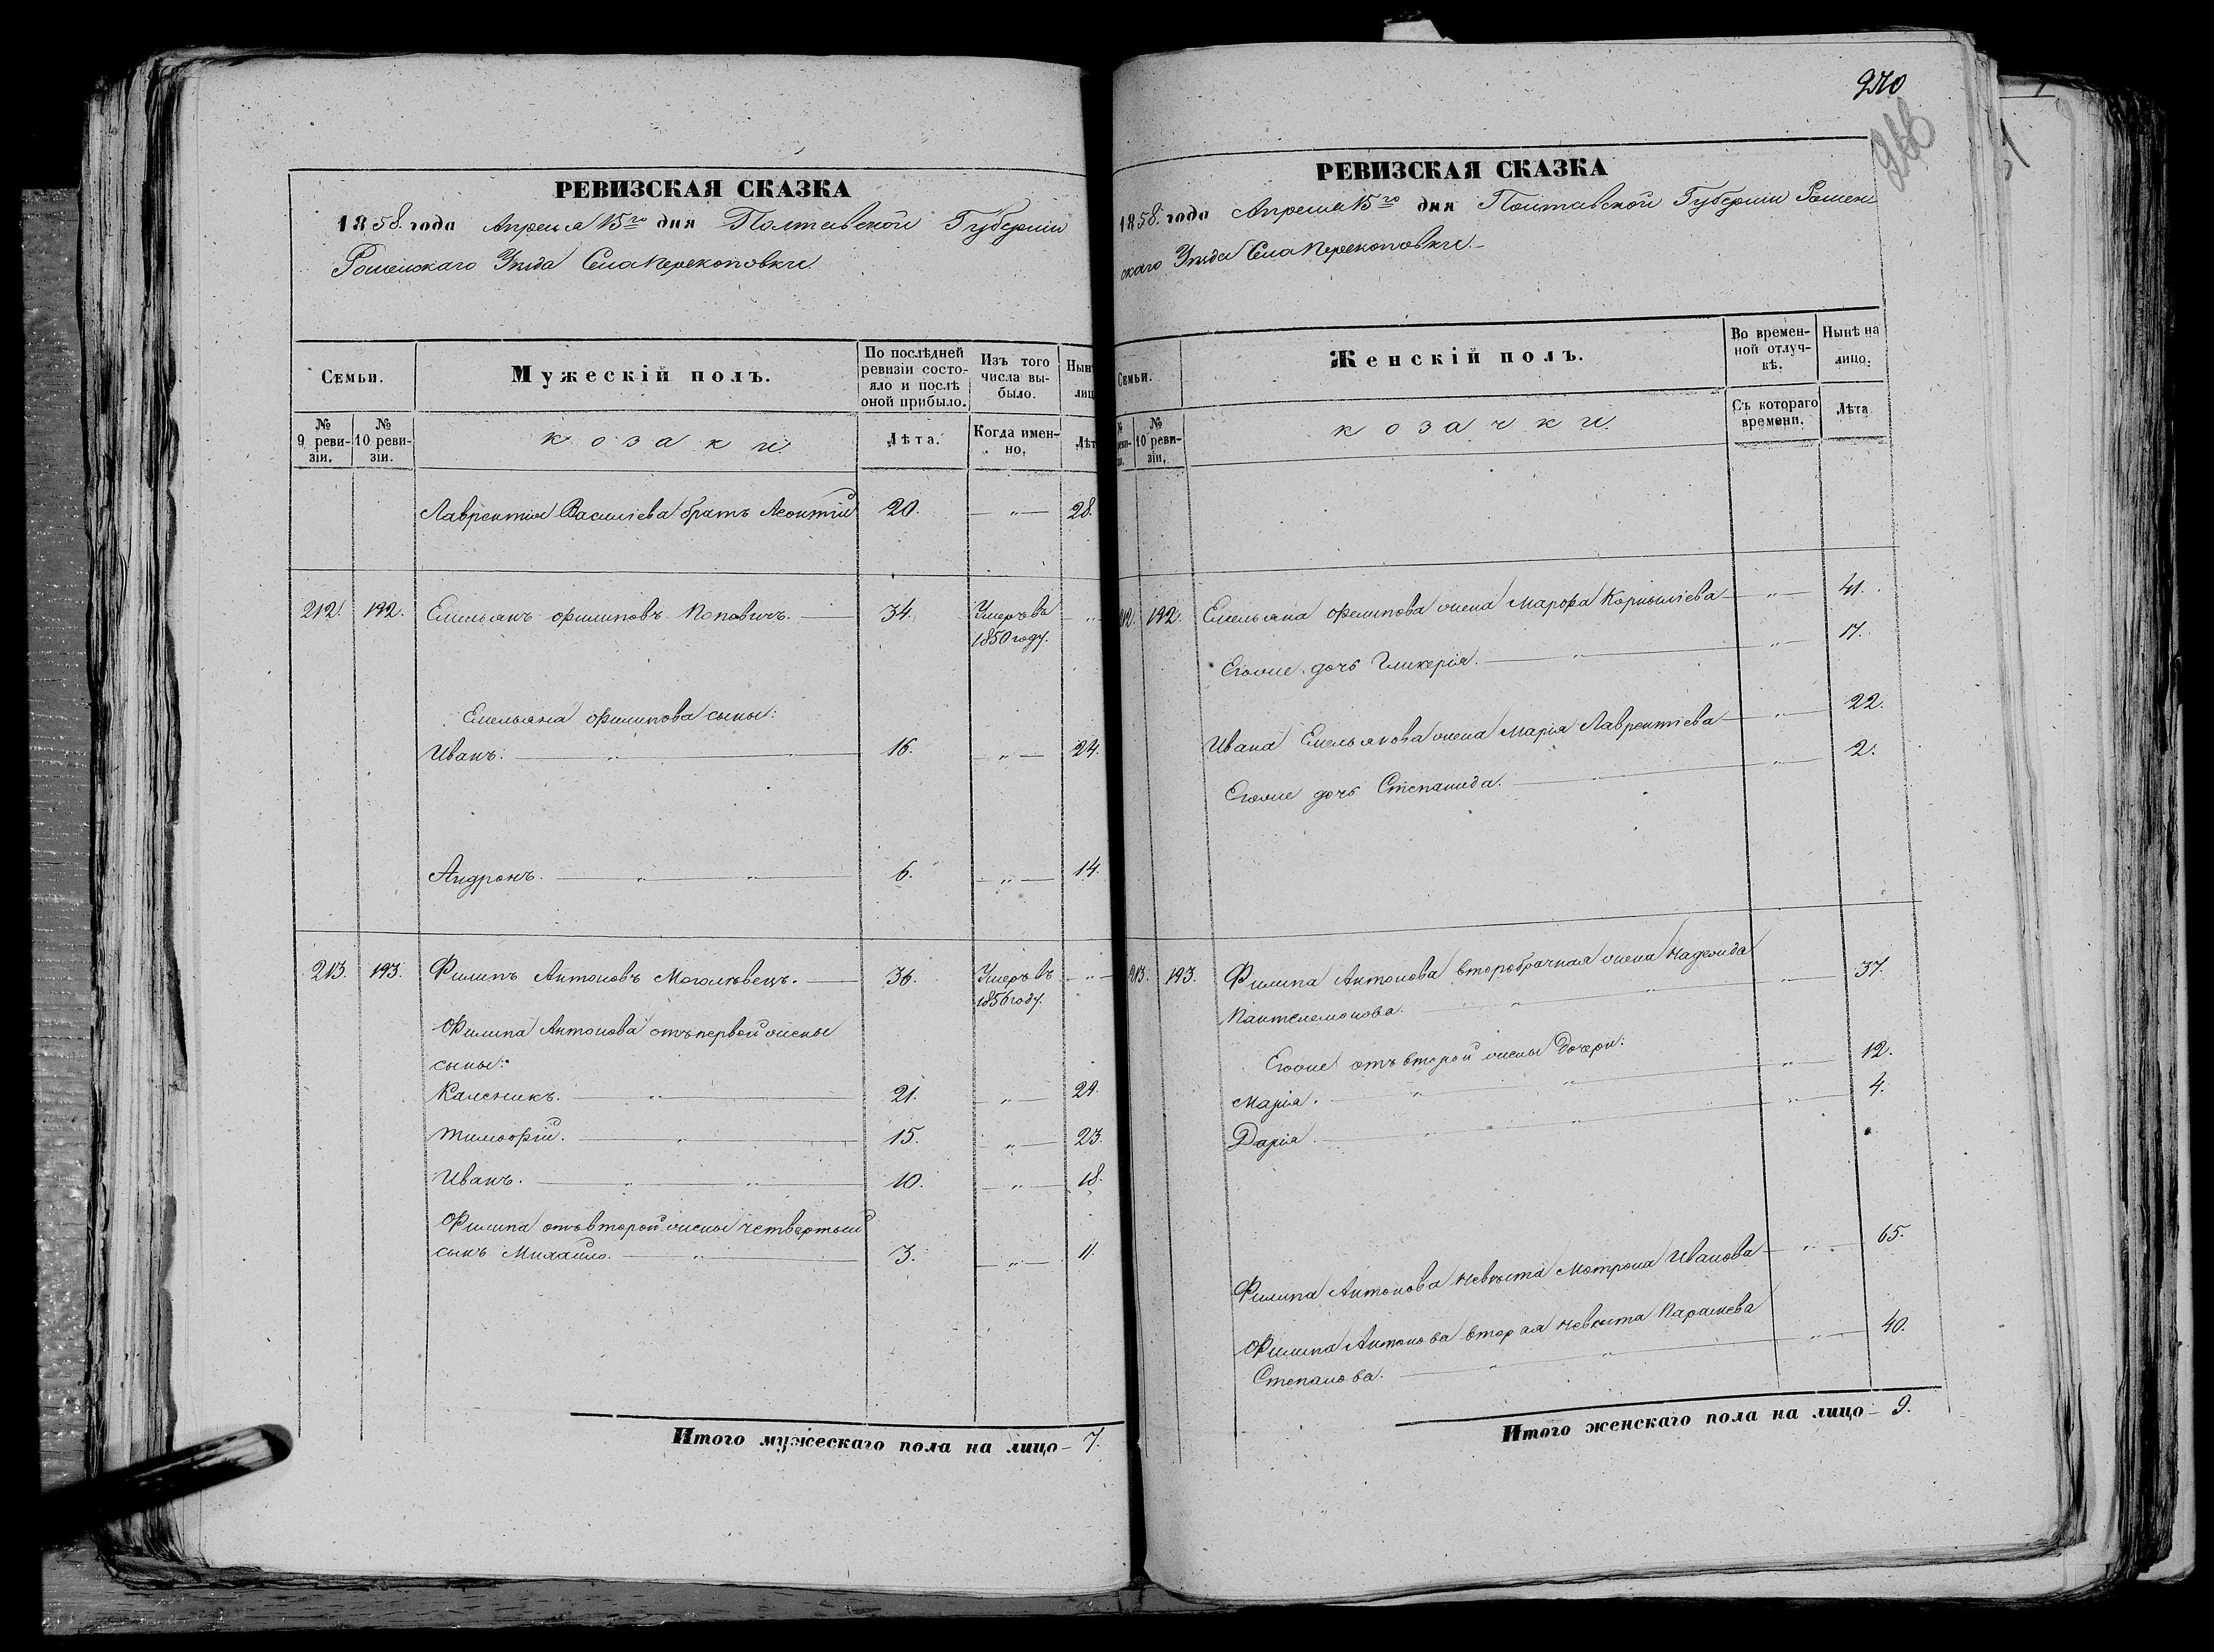 РЕВИЗСКАЯ СКАЗКА
1858. года Апреля 15го дня Полтавской Губерніи
Роменскаго Уѣзда Села Перекоповки.
Семьи.
Мужескій полъ.
По послѣдней ревизіи состояло и послѣ оной прибыло.
Изъ того числа выбыло.
Нын
лиц
№ 9 ревизіи.
№ 10 ревизіи.
козаки.
Лѣта.
Когда именно.
Лѣт
Лаврентія Василіева братъ Леонтій 20. — " — 28.
212. 192. Емельянъ Филиповъ Поповичъ. — 34. Умеръ въ — "
1850 году.
Емельяна Филипова сыны:
Иванъ. — " — 16. — " — 24.
Андронъ. — " — " — 6. — " — 14.
213. 193. Филипъ Антоновъ Моголѣвецъ. — 36. Умеръ въ — " —
1856 году.
Филипа Антонова отъ первой жены
сыны:
Калѣникъ. — " — 21. — " — 29.
Тимофій. — " — 15. — " — 23.
Иванъ. — " — " — 10. — " — 18.
Филипа отъ второй жены четвертый
сынъ Михайло. — " — 3. — " — 11.
Итого мужескаго пола на лицо — 7.
270
266
РЕВИЗСКАЯ СКАЗКА
1858. года Апреля 15го дня Полтавской Губерніи Ромен
скаго Уѣзда Села Перекоповки.
Семьи.
Женскій полъ.
Во временной отлучкѣ.
Нынѣ на лицо.
№ 10 ревизіи.
козачки.
Съ котораго времени.
Лѣта
212. 192. Емельяна Филипова жена Марфа Корниліева — " — 41.
Егоже дочь Гликерія. — " — " — 17.
Ивана Емельянова жена Марія Лаврентіева — " — 22.
Егоже дочь Степанида. — " — 2.
213. 193. Филипа Антонова второбрачная жена Надежда
Пантелемонова. — " — " — " — 37.
Егоже отъ второй жены дочери:
Марія. — " — " — " — 12.
Дарія. — " — " — " — 4.
Филипа Антонова невѣста Мотрона Иванова — " — 65.
Филипа Антонова вторая невѣста Параскева
Степанова. — " — " — " — 40.
Итого женскаго пола на лицо — 9.